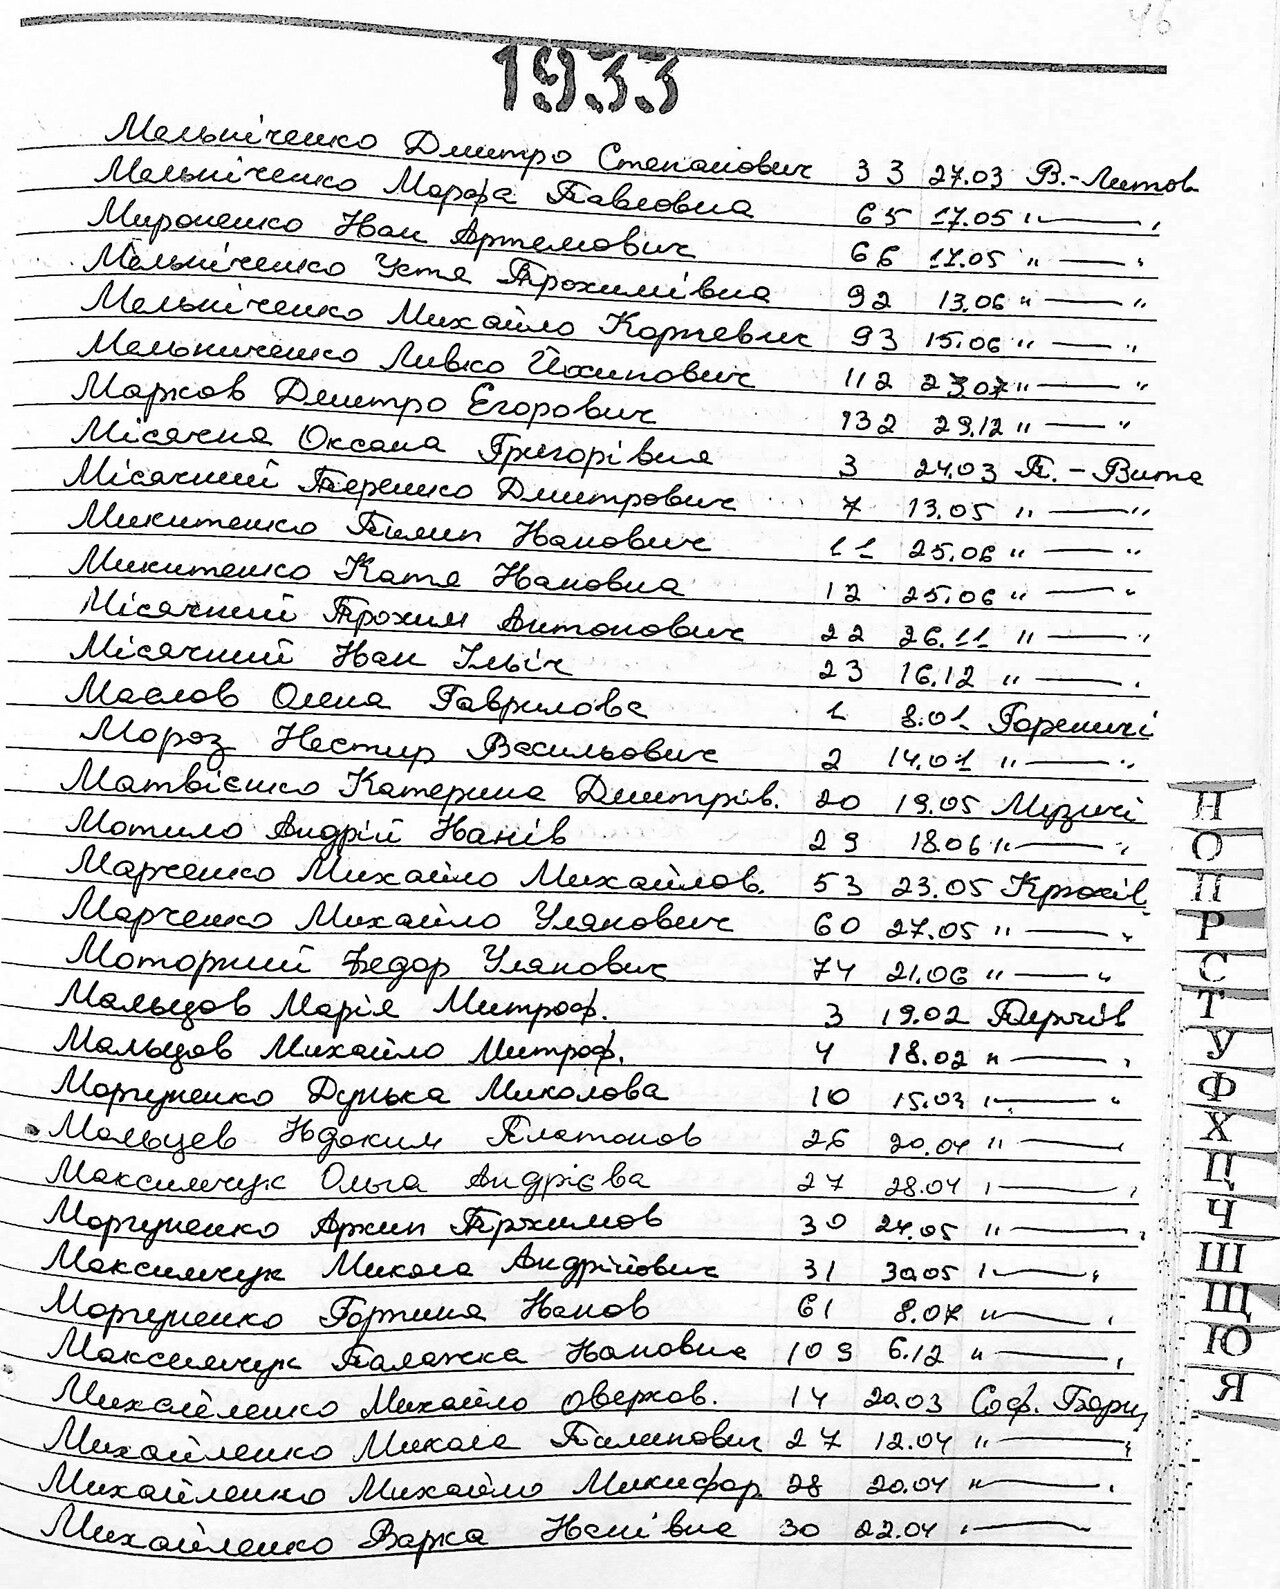 46
1933
Мельніченко Дмитро Степанович 33 27.03 В.-Литов
Мельніченко Марфа Павловна 65 17.05 " — "
Мироненко Іван Артемович 66 17.05 " — "
Мельніченко Устя Трохимівна 92 13.06 " — "
Мельніченко Михайло Корневич 93 15.06 " — "
Мельниченко Ливко Йхипович 112 23.07 " — "
Марков Дмитро Егорович 132 29.12 " — "
Місячна Оксана Григорівна 3 24.03 П.-Вита
Місячний Терешко Дмитрович 7 13.05 " — "
Микитенко Пилип Іванович 11 25.06 " — "
Микитенко Катя Івановна 12 25.06 " — "
Місячний Трохим Антонович 22 26.11 " — "
Місячний Іван Ільіч 23 16.12 " — "
Маслов Олена Гаврилова 1 8.01 Гореничі
Мороз Нестир Васильович 2 14.01 " — "
Матвієнко Катерина Дмитрів. 20 19.05 Музичі
Мотило Андрій Іванів 29 18.06 " — "
Марченко Михайло Михайлов. 53 23.05 Крюків.
Марченко Михайло Улянович 60 27.05 " — "
Моторний Федор Улянович 74 21.06 " — "
Мальцов Марія Митроф. 3 19.02 Гнурчів
Мальцов Михайло Митроф. 4 18.02 " — "
Моргуненко Дунька Миколова 10 15.03 " — "
Мальцев Ндоким Платонов 26 20.04 " — "
Максимчук Ольга Андрієва 27 28.04 " — "
Моргуненко Архип Трхимов 30 24.05 " — "
Максимчук Микола Андрійович 31 30.05 " — "
Моргуненко Горпина Іванов 61 8.07 " — "
Максимчук Палажка Івановна 109 6.12 " — "
Михайленко Михайло Оверков. 14 20.03 Соф. Борщ
Михайленко Микола Пилипович 27 12.04 " — "
Михайленко Михайло Микифор. 28 20.04 " — "
Михайленко Варка Іванівна 30 22.04 " —
Н
О
П
Р
С
Т
У
Ф
Х
Ц
Ч
Ш
Щ
Ю
Я